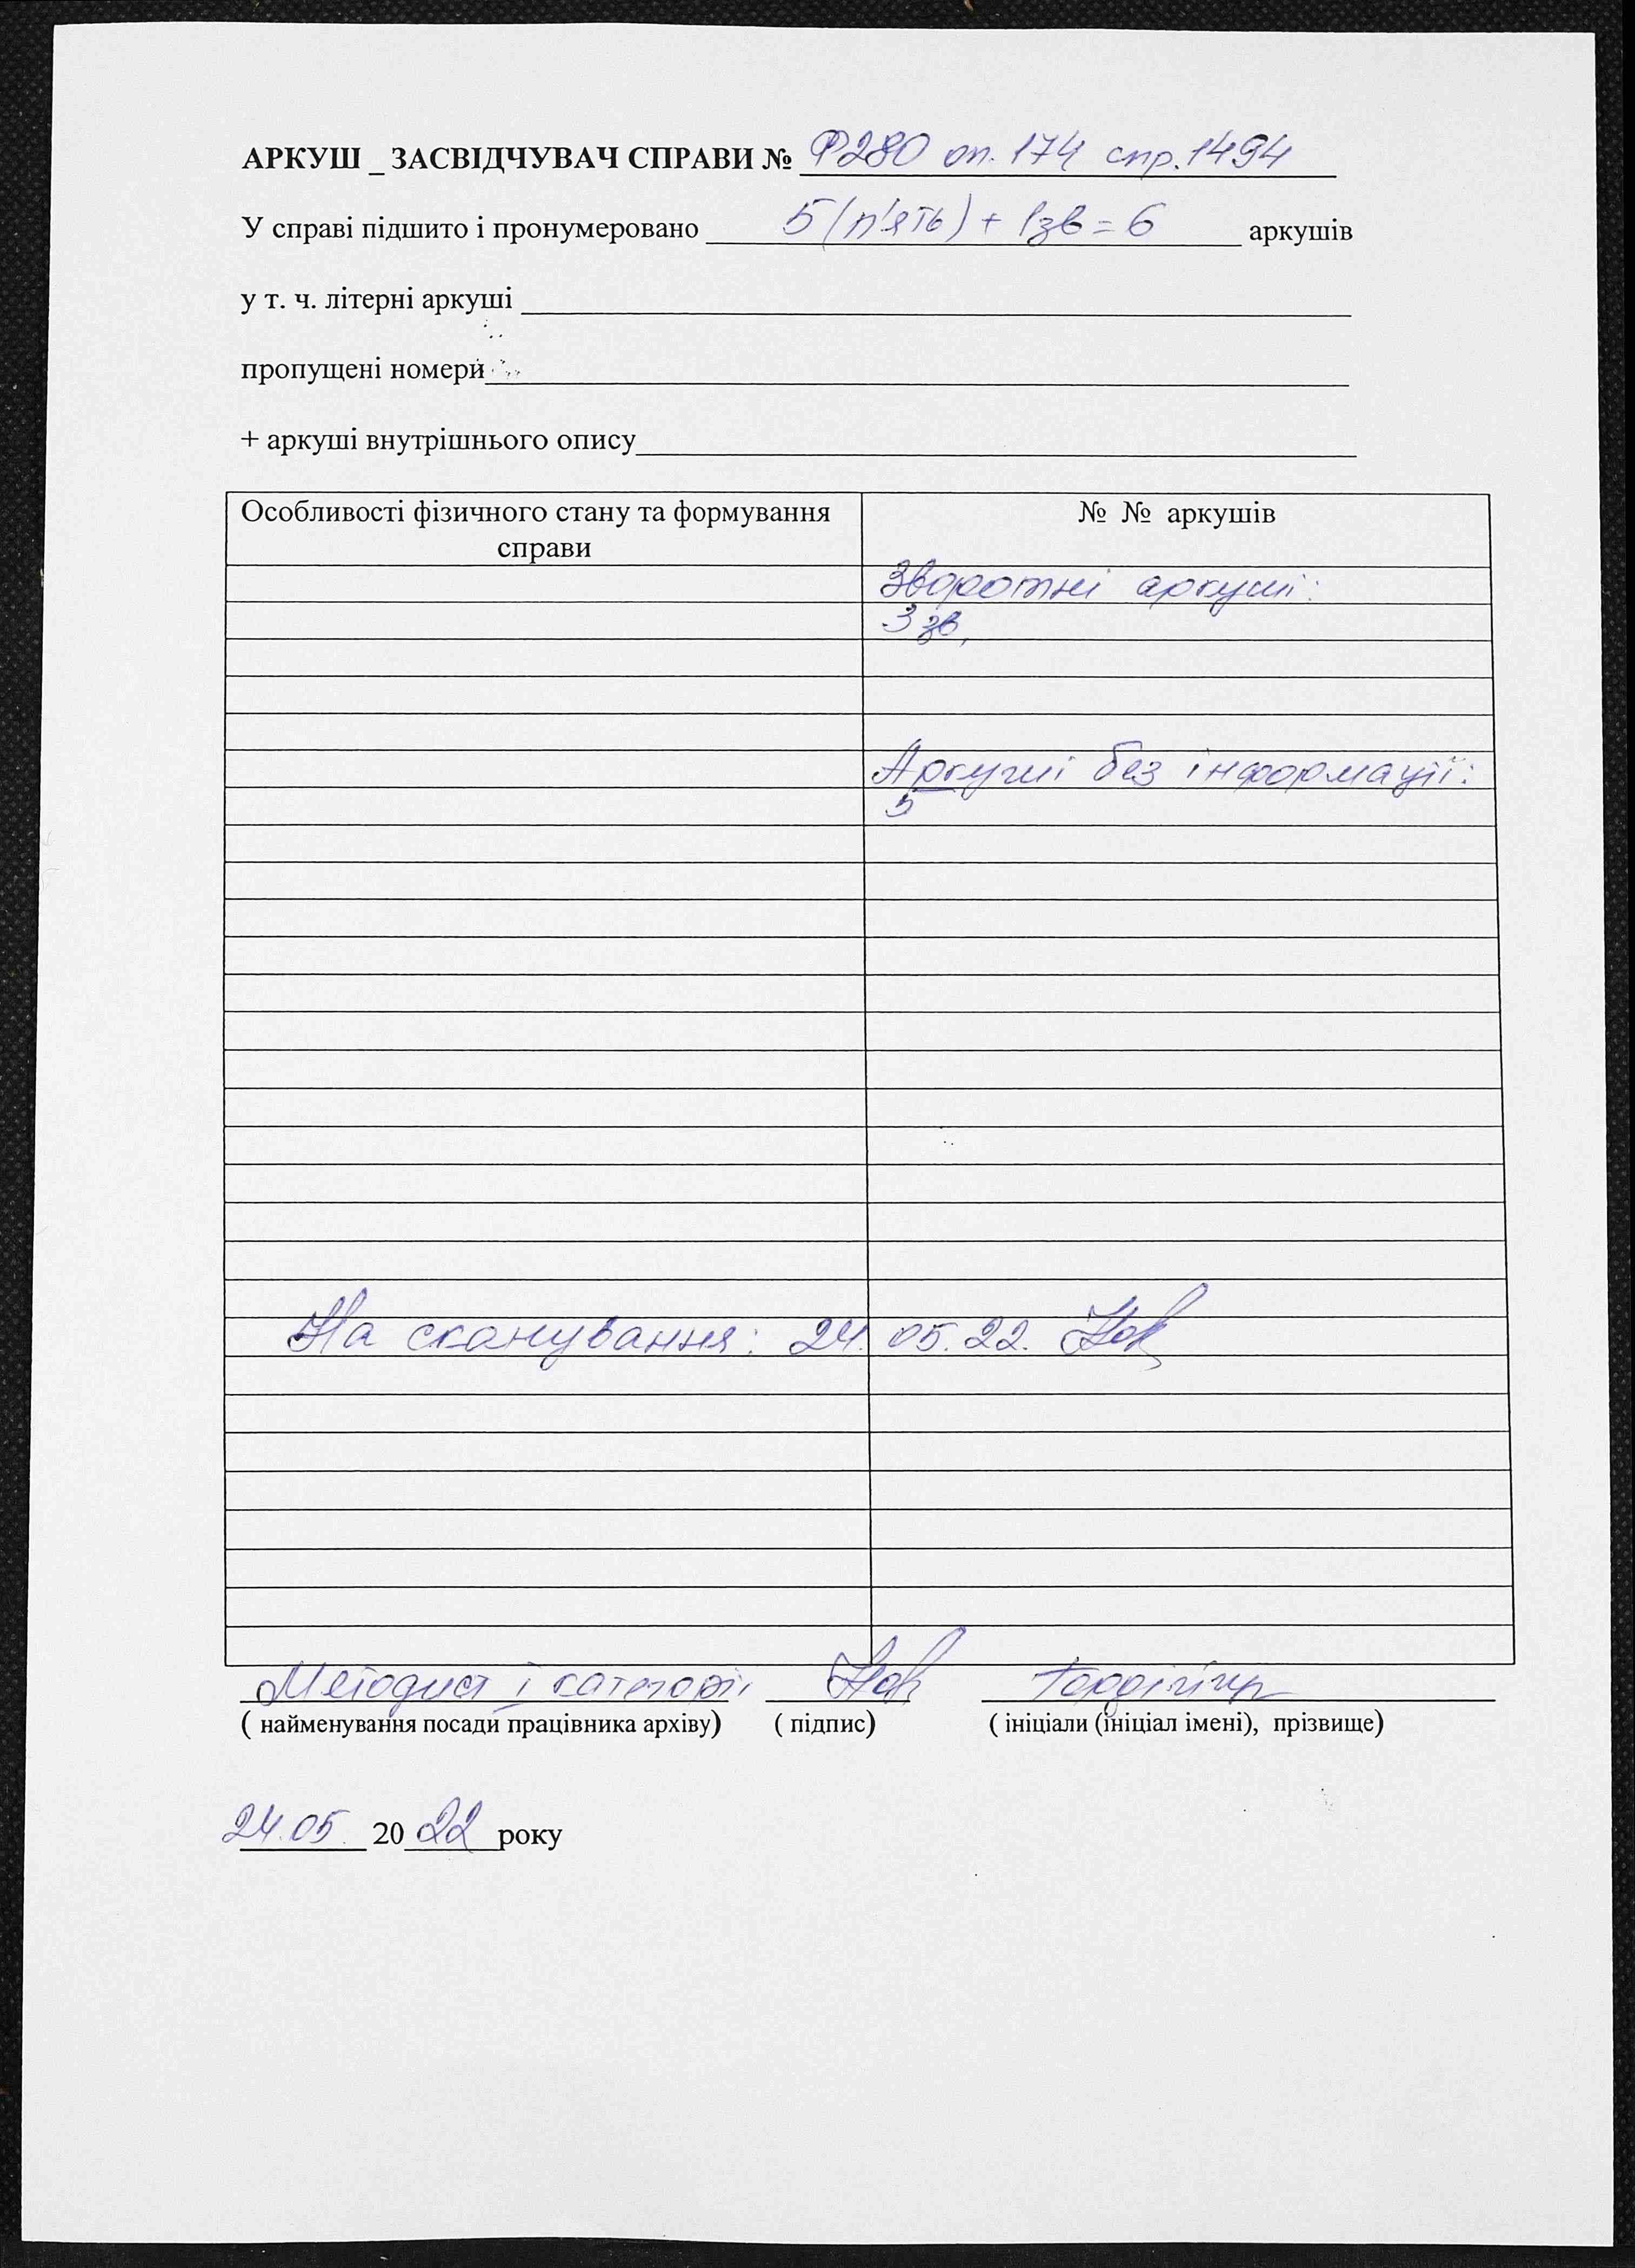 АРКУШ _ ЗАСВІДЧУВАЧ СПРАВИ № Ф280 оп. 174 спр. 1494
У справі підшито і пронумеровано 5 (п'ять) + 1зв = 6 аркушів
у т. ч. літерні аркуші
пропущені номери
+ аркуші внутрішнього опису
Особливості фізичного стану та формування справи
№ № аркушів
Зворотні аркуші:
3 зв,
Аркуші без інформації:
5
На сканування: 24. 05. 22.
Методист І категорії
( найменування посади працівника архіву) ( підпис) ( ініціали (ініціал імені), прізвище)
24.05. 20 22 року